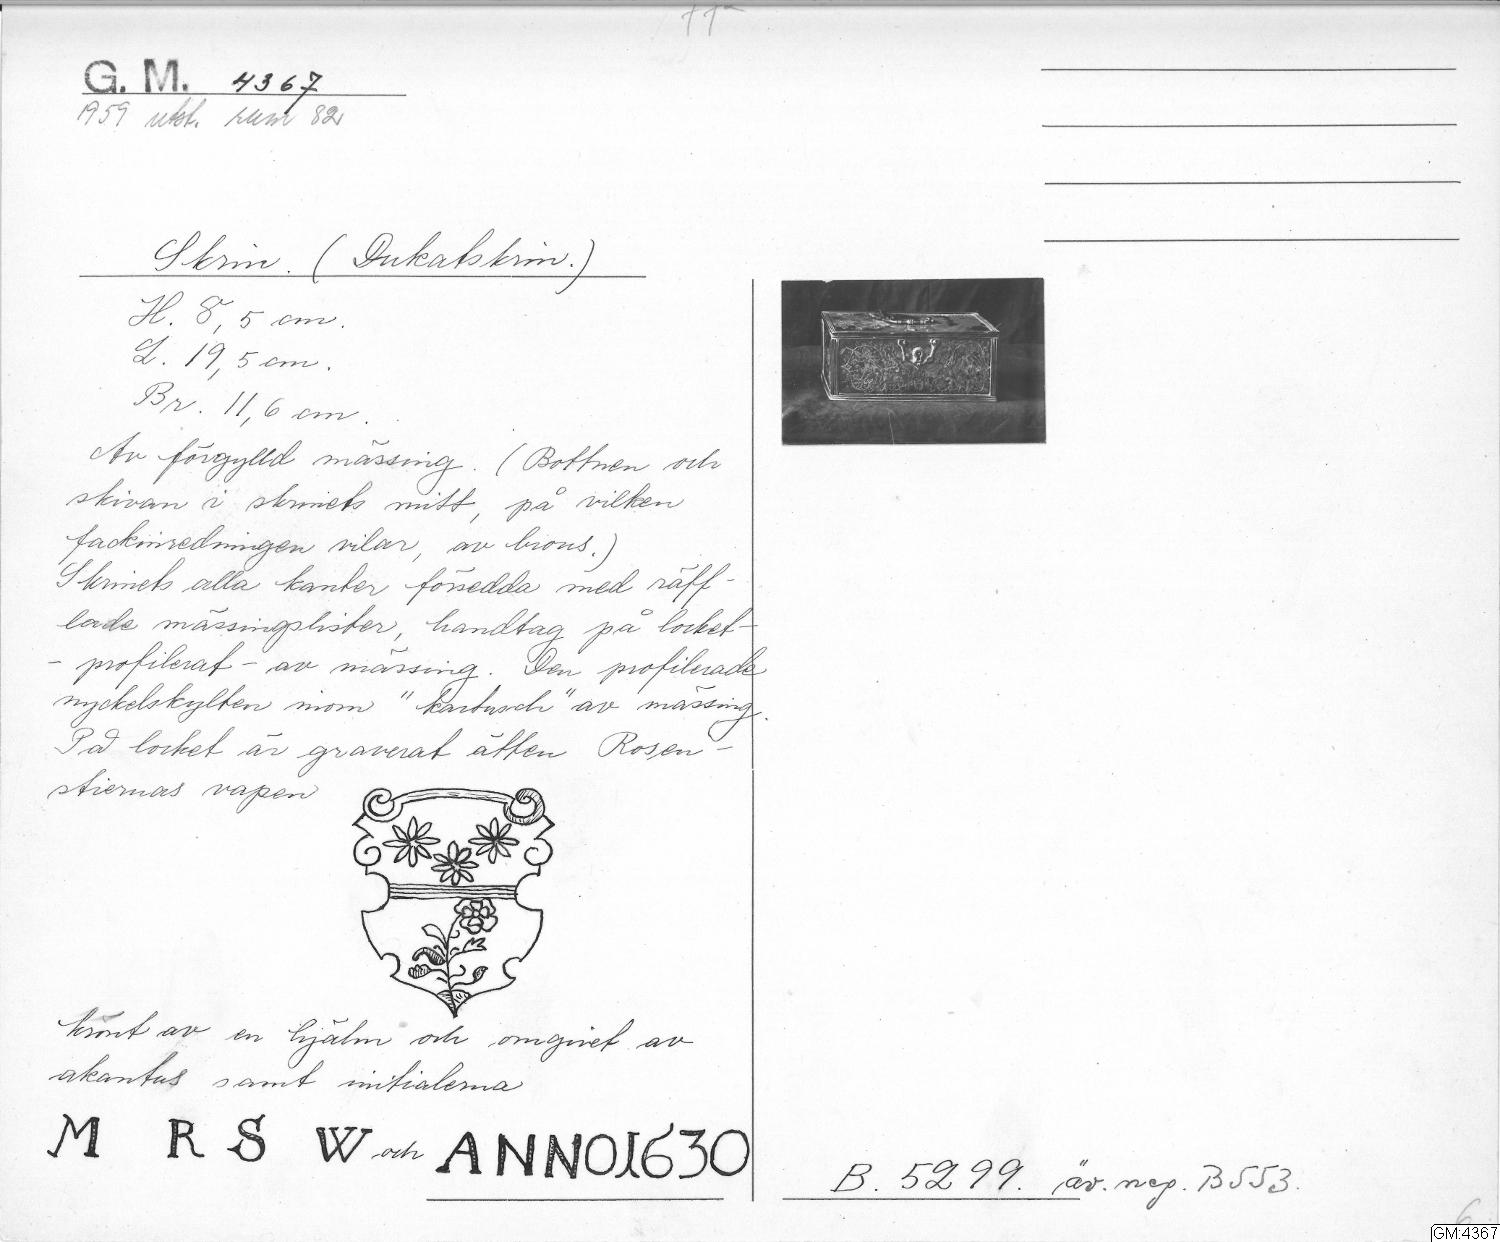 G. M. 4367
1959 utst. rum 82
Skrin. (Dukatskrin.)
H. 8,5 cm.
L. 19,5 cm.
Br. 11,6 cm.
Av förgylld mässing. (Bottnen och
skivan i skrinets mitt, på vilken
fackinredningen vilar, av brons.)
Skrinets alla kanter försedda med räff-
lade mässingslister, handtag på locket-
- profilerat - av mässing. Den profilerade
nyckelskylten inom "kartusch" av mässing.
På locket är graverat ätten Rosen-
stiernas vapen
krönt av en hjälm och omgivet av
akantus samt initialerna
M R S W och ANNO 1630
B. 5299. äv. neg. B553.
6
GM:4367